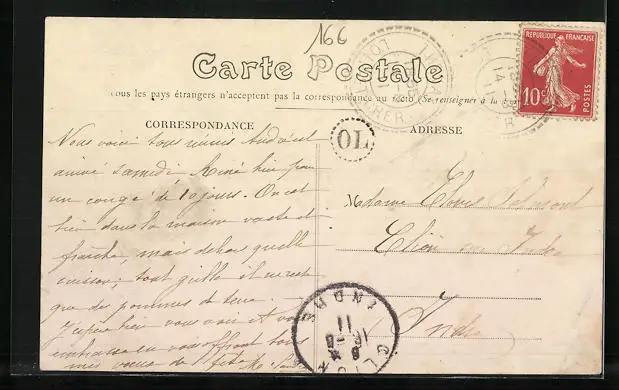 166
Carte Postale
Tous les pays étrangers n'acceptent pas la correspondance au recto (Se renseigner à la
CORRESPONDANCE
ADRESSE
REPUBLIQUE FRANÇAISE
10c
POSTES
CHER
TO
Nous voici tous réunis André est
arrivé samedi Aimé hier pour
un congé de 10 jours. On est
bien dans la maison vaste et
fraîche, mais dehors quelle
cuisson; tout grille il ne reste
que des pommes de terre.
J'espère bien vous voir et vous
embrasse en vous offrant tous
mes voeux de fête
Madame Clovis
Clion sur Indre
Indre
CLION
INDRE
11